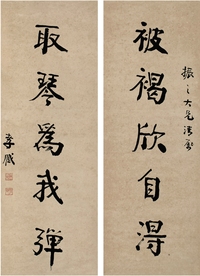 振之大兄清属
被褐欣自得
取琴為我彈
李